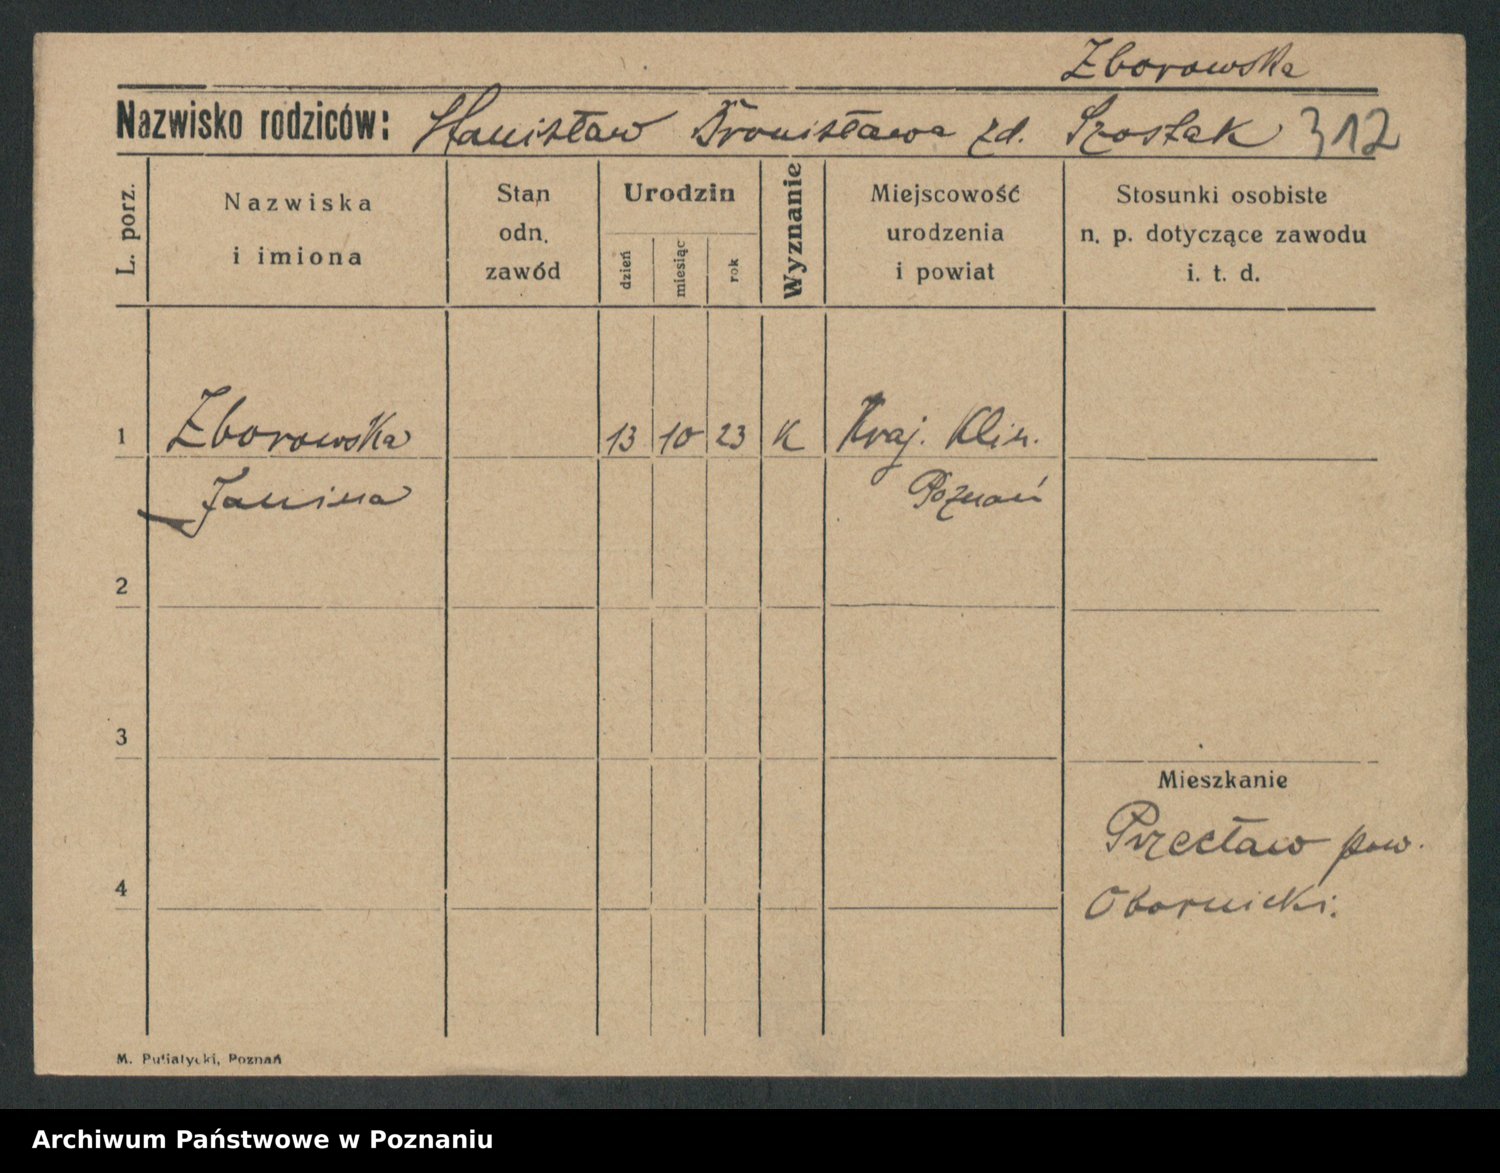 Zborowska
Nazwisko rodziców: Stanisław Bronisława zd. Szostak 312
L. porz.
Nazwiska
i imiona
Stan
odn.
zawód
Urodzin
dzień
miesiąc
rok
Wyznanie
Miejscowość
urodzenia
i powiat
Stosunki osobiste
n. p. dotyczące zawodu
i. t. d.
1 Zborowska 13 10 23 K Kraj. Klin.
Janina Poznań
2
3
Mieszkanie
Przecław pow.
4
Obornicki.
M. Putiatycki, Poznań
Archiwum Państwowe w Poznaniu